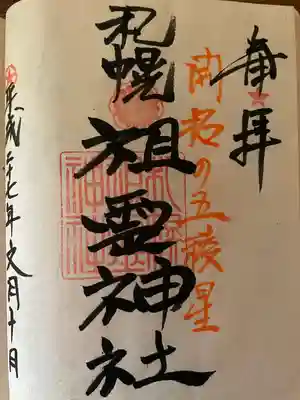 奉拝
開拓の五稜星
札幌祖霊神社
平成二十七年文月十日